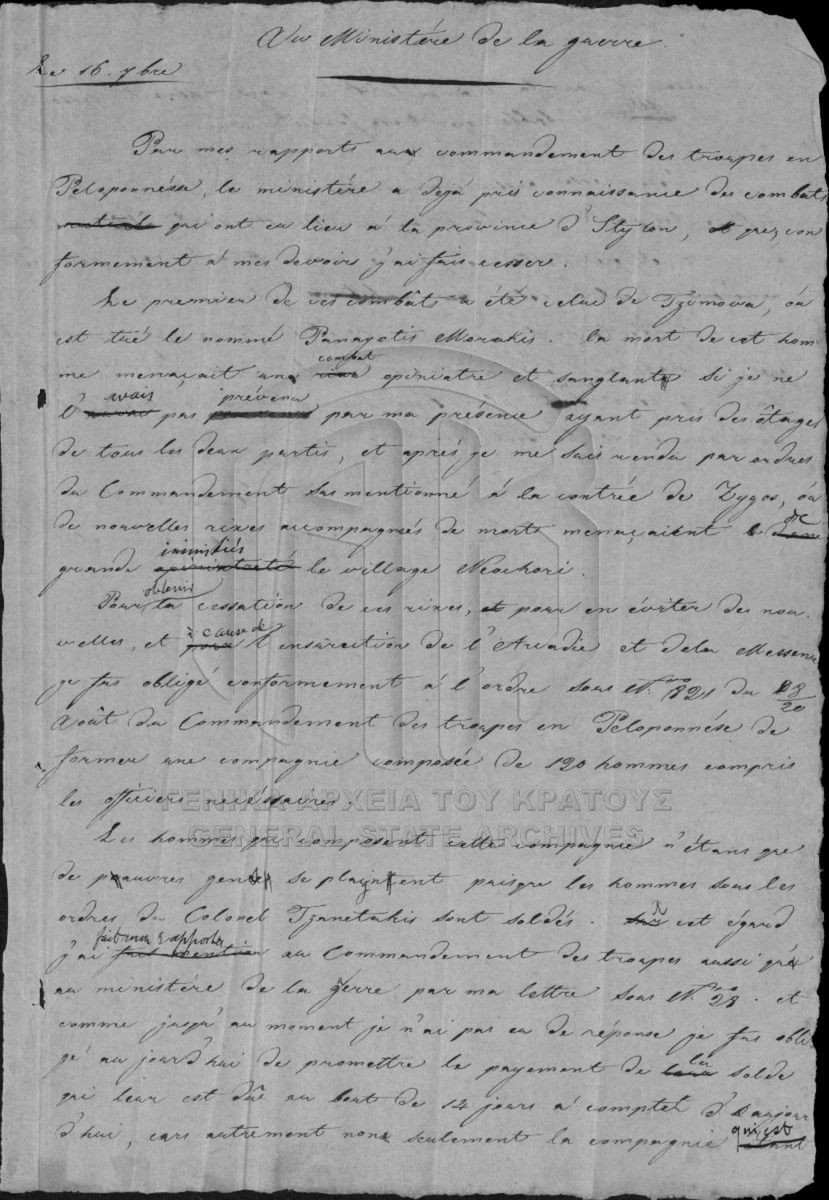 Au Ministére de la guerre
Le 16. 7bre
Par mes rapports aux commandement des troupes en
Péloponnésse, le ministére a dejà pris connaissance des combats
qui ont eu lieu à la province d'Stylon, et que, con
formement à mes devoirs j'ai fais cesser.
Le premier de ces combâts a été celui de Tzimova, óu
est tué le nommé Panayotis Morakis. la mort de cet hom
me menaçait un combat opiniatre et sanglant si je ne
l'avais pas prévenu par ma présence ayant pris des ôtages
de tous les deux partis, et aprés je me suis rendu par ordres
du Commandement susmentionné á la contrée de Zygos, óu
de nouvelles rixes accompagnés de morts menaçaient de
grande inimitiés le village Neochori.
Pour obtenir la cessation de ces rixes, et pour en éviter des nou-
velles, et à cause de l'ensurection de l'Arcadie et dela Messenie
je fus obligé conformement á l'ordre sous N.ro 821 du 28/20
Août du Commandement des troupes en Péloponnése de
former une compagnie composée de 120 hommes compris
les officiers necéssaires.
ΓΕΝΙΚΑ ΑΡΧΕΙΑ ΤΟΥ ΚΡΑΤΟΥΣ
GENERAL STATE ARCHIVES
Les hommes qui composent cette compagnie n'étans que
de pauvres gens se playntent puisque les hommes sous les
ordres du Colonel Tzanetakis sont soldés. A cet égard
j'ai fait mon rapport au Commandement des troupes aussi que
au ministére de la gerre par ma lettre sous N.ro 28. et
comme jusqu'au moment je n'ai pas eu de réponse je fus obli
gé au jourd'hui de promettre le payement de la solde
qui leur est dûe au bout de 14 jours á compter d'aujour
d'hui, cars autrement non seulement la compagnie qui est